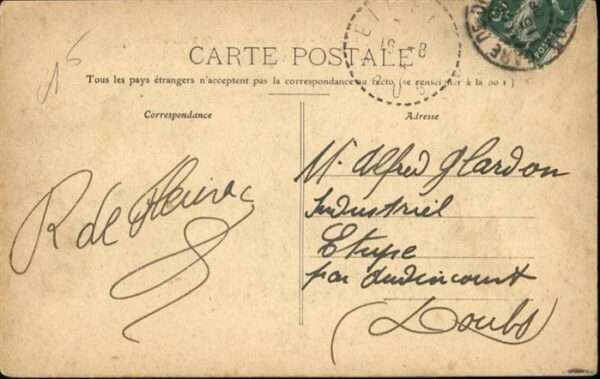 CARTE POSTALE
Tous les pays étrangers n'acceptent pas la correspondance au recto (se renseigner à la poste)
Correspondance
Adresse
R de
Mr Alfred Glardon
Industriel
Etupe
par Audincourt
(Doubs)